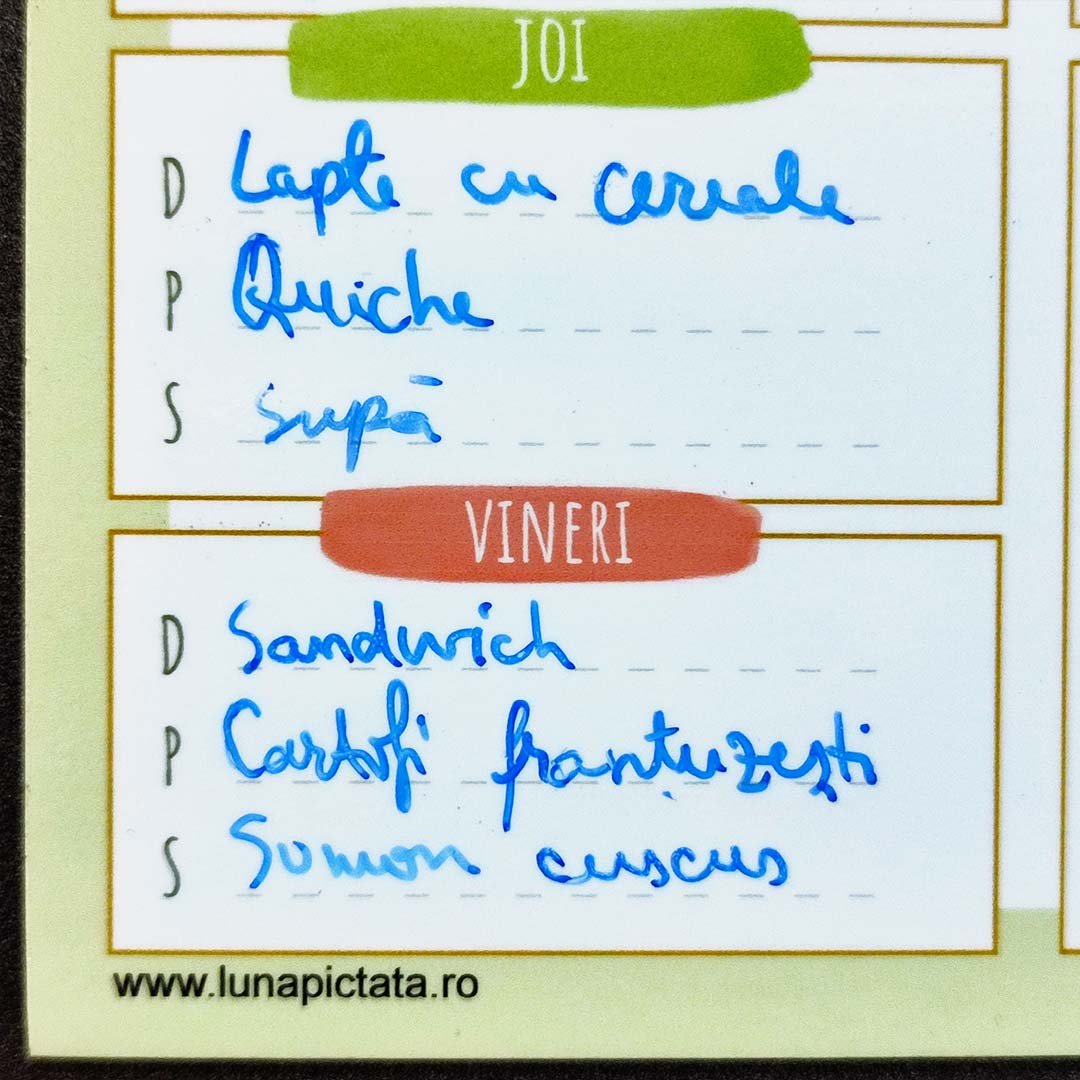 JOI
D Lapte cu cereale
P Quiche
S Supă
VINERI
D Sandwich
P Cartofi franțuzești
S Somon cuscus
www.lunapictata.ro